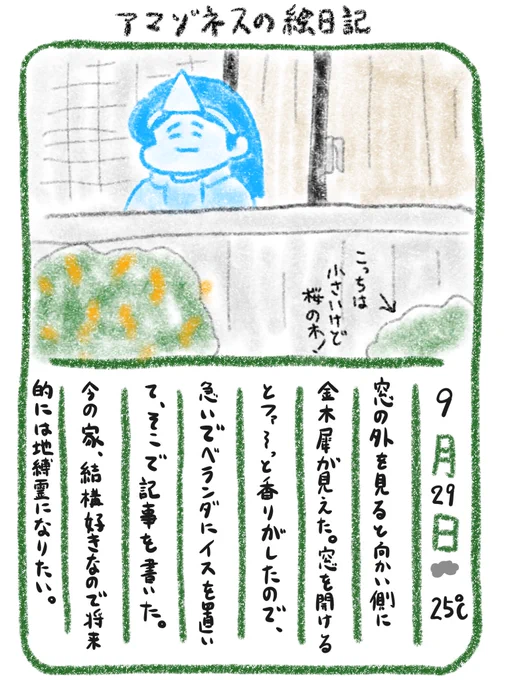 アマゾネスの絵日記
こっちは
小さいけど
桜の木!
9月29日 25℃
窓の外を見ると向かい側に
金木犀が見えた。窓を開ける
とファ〜っと香りがしたので、
急いでベランダにイスを置い
て、そこで記事を書いた。
今の家、結構好きなので将来
的には地縛霊になりたい。